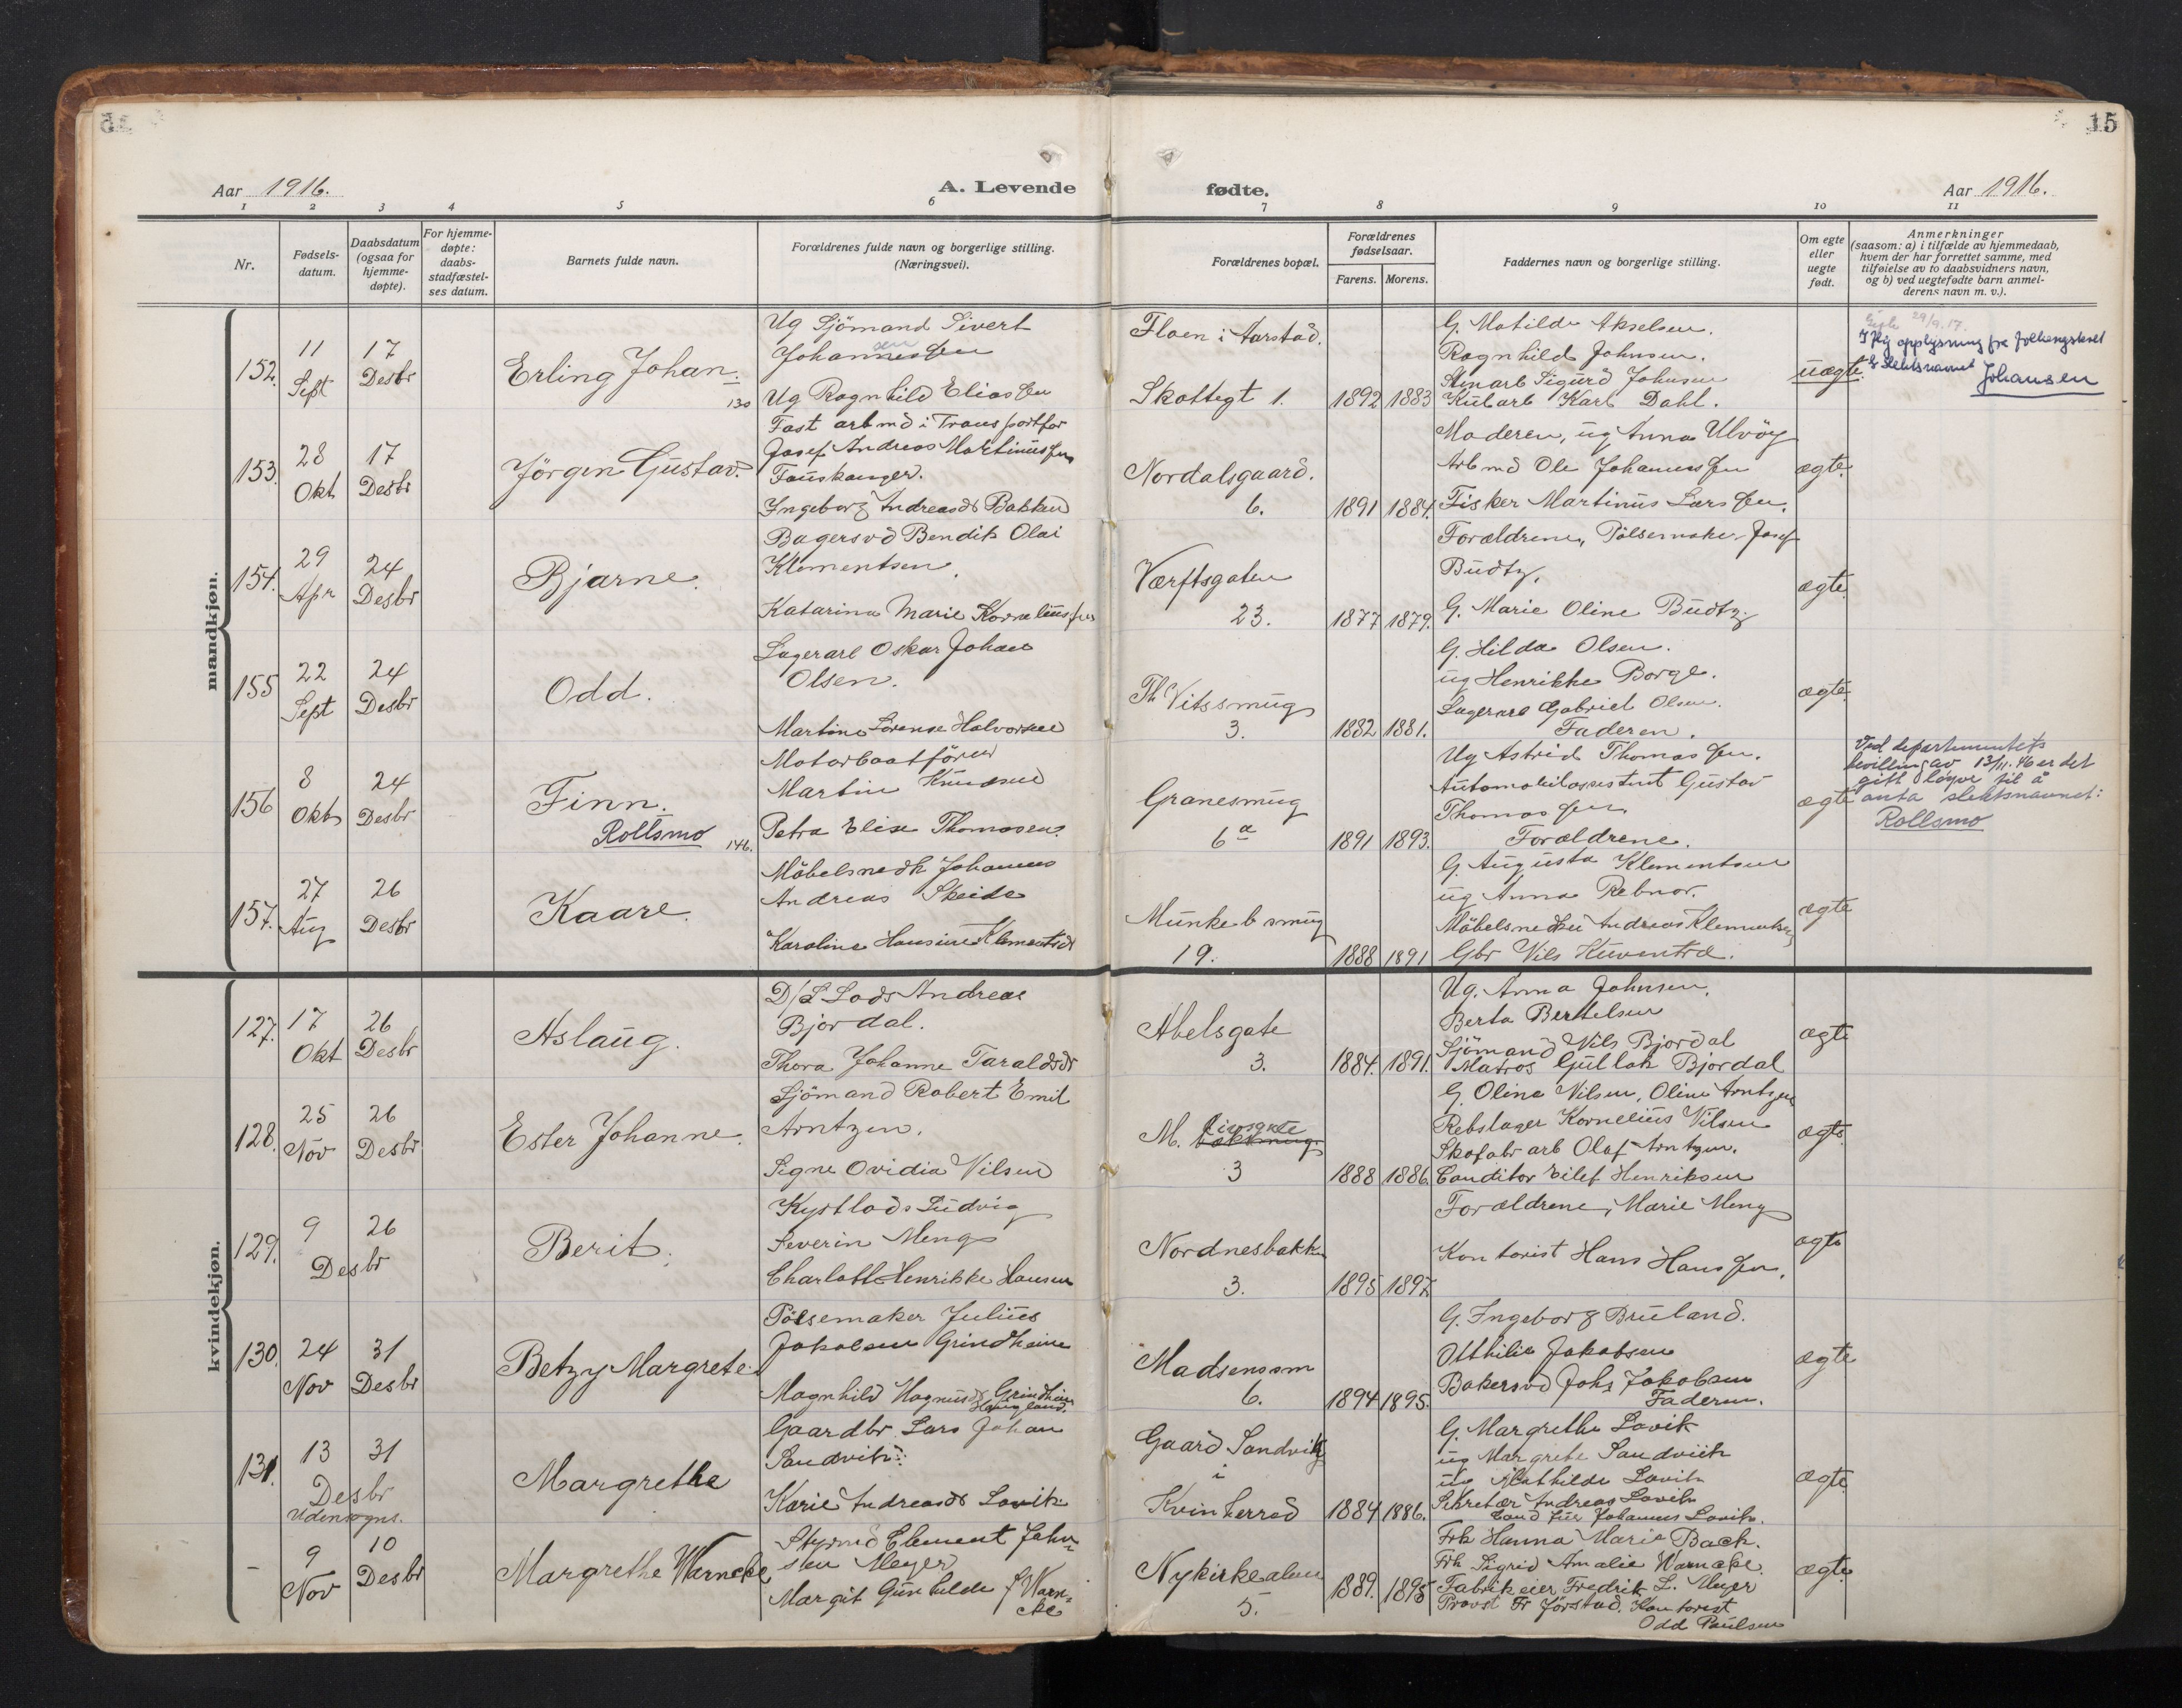 15
Aar 1916.
A. Levende fødte.
Aar 1916.
1 2 3 4 5 6 7 8 9 10 11
Nr.
Fødsels-
datum.
Daabsdatum
(ogsaa for
hjemme-
døpte).
For hjemme-
døpte:
daabs-
stadfæstel-
ses datum.
Barnets fulde navn.
Forældrenes fulde navn og borgerlige stilling.
(Næringsvei).
Forældrenes bopæl.
Forældrenes
fødselsaar.
Farens. Morens.
Faddernes navn og borgerlige stilling.
Om egte
eller
uegte
født.
Anmerkninger
(saasom: a) i tilfælde av hjemmedaab,
hvem der har forrettet samme, med
tilføielse av to daabsvidners navn,
og b) ved uegtefødte barn anmel-
derens navn m. v.).
mandkjøn.
152.
11
Sept
17
Desbr
Erling Johan.
130
Ug Sjömand Sivert
Johannessen
Ug Ragnhild Eliassen
Floen i Aarstad.
Skottegt 1.
1892 1883
G. Matilde Akselsen.
Ragnhild Johnsen.
Stenarb Sigurd Johnsen
Kularb Karl Dahl.
uægte.
29/9.17.
Ifölg opplysning fra folkeregisteret
Slektsnavnet
Johansen
153.
28
Okt
17
Desbr
Jörgen Gustav.
Fast arbmd i Transportfor
Josef Andreas Martinussen
Fauskanger.
Ingeborg Andreasdr Bakken
Nordalsgaard.
6.
1891 1884.
Moderen, ug Anna Ulvöy
Arbmd Ole Johannessen
Fisker Martinus Larssen.
ægte.
154.
29
Apr
24
Desbr
Bjarne.
Bagersvd Bendik Olai
Klementsen.
Katarina Marie Korneliussen
Værftsgaten
23.
1877 1879.
Forældrene, Pölsemaker Josef
Budtz.
G. Marie Oline Budtz
ægte.
155
22
Sept
24
Desbr
Odd.
Lagerarb Oskar Johan
Olsen.
Martine Lorense Halvorsen
Th Vitssmug
3.
1882 1881.
G. Hilda Olsen.
ug Henrikke Borge.
Lagerarb Gabriel Olsen.
Faderen.
ægte.
156
8
Okt
24
Desbr
Finn.
Rollsmo
146.
Motorbaatförer
Martin Knudsen
Petra Elise Thomasen.
Granesmug
6a
1891 1893.
Ug Astrid Thomassen.
Automobilassistent Gustav
Thomassen.
Forældrene.
ægte
Ved departementets
bevilling av 13/11.46 er det
gitt löyve til å
anta slektsnavnet:
Rollsmo
157.
27
Aug
26
Desbr
Kaare.
Möbelsnedk Johannes
Andreas Skeide
Karoline Hansine Klementsdr
Munkeb smug
19.
1888 1891
G. Augusta Klementsen
ug Anna Rebnor.
Möbelsnedker Andreas Klementsen
Gbr Nils Kuventræ.
ægte
kvindekjøn.
127.
17
Okt
26
Desbr
Aslaug.
D/S Lods Andreas
Bjordal.
Thora Johanne Taraldsdr
Abelsgate
3.
1884. 1891.
Ug. Anna Johnsen.
Berta Bertelsen
Sjömand Nils Bjordal
Matros Gullak Bjordal
ægte
128.
25
Nov
26
Desbr
Ester Johanne.
Sjömand Robert Emil
Arntzen.
Signe Ovidia Nilsen
M.
3
1888 1886.
G. Olina Nilsen, Oline Arntzen
Rebslager Kornelius Nilsen
Skofabr arb Olaf Arntzen.
Conditor Eilef Henriksen
ægte
129.
9
26
Desbr
Berit.
Kystlods Ludvig
Severin Meng
Charlotte Henrikke Hansen
Nordnesbakk
3.
1895 1897
Forældrene, Marie Meng
Kontorist Hans Hanssen.
ægte
130.
24
Nov
31
Desbr
Betzy Margrete.
Pölsemaker Julius
Jakobsen Grindheim
Magnhild Magnusdr Grindheim
Haugland.
Madsensm
6.
1894 1895.
G. Ingeborg Bruland.
Otthilie Jakobsen
Bakersvd Johs Jakobsen
Faderen.
ægte
131.
13
31
Desbr
Udensogns.
Margrethe
Gaardbr. Lars Johan
Sandvik.
Karie Andreasdr Lavik
Gaard Sandvik
i
Kvinherred
1884 1886.
G. Margrethe Lavik
ug Margrete Sandvik
ug Mathilde Lavik
Sekretær Andreas Lavik
Cand jur Johannes Lavik.
ægte
-
9
Nov
10
Desbr
Margrethe Warncke
Styrmd Clement John-
sen Meyer
Margit Gunhilde f Warn-
cke
Nykirkealm
5.
1889. 1895
Frk Hanna Marie Back.
Frk Sigrid Amalie Warncke.
Fabrikeier Fredrik L. Meyer
Provst Fr Jörstad. Kontorist
Odd Paulsen
ægte